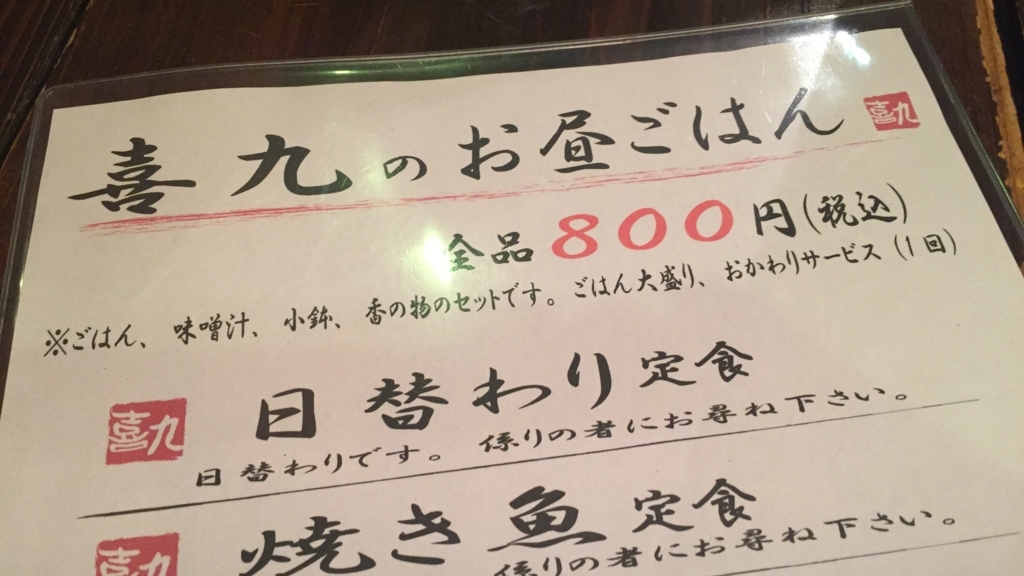 喜九のお昼ごはん
喜九
全品800円(税込)
※ごはん、味噌汁、小鉢、香の物のセットです。ごはん大盛り、おかわりサービス(1回)
喜九
日替わり定食
日替わりです。係りの者にお尋ね下さい。
喜九
焼き魚定食
係りの者にお尋ね下さい。